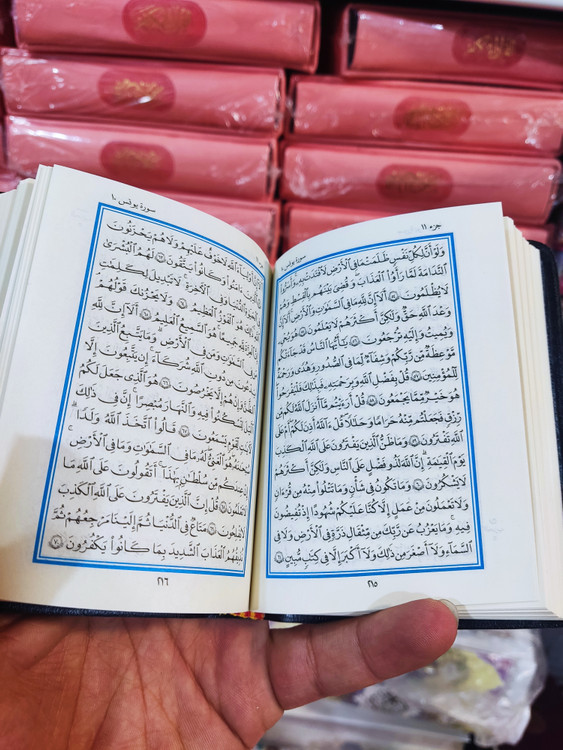 جزء ١١
سورة يونس ١٠
وَلَوْ أَنَّ لِكُلِّ نَفْسٍ ظَلَمَتْ مَا فِي ٱلْأَرْضِ لَٱفْتَدَتْ بِهِۦ وَأَسَرُّوا۟
ٱلنَّدَامَةَ لَمَّا رَأَوُا۟ ٱلْعَذَابَ وَقُضِيَ بَيْنَهُم بِٱلْقِسْطِ وَهُمْ
لَا يُظْلَمُونَ ٥٤ أَلَآ إِنَّ لِلَّهِ مَا فِي ٱلسَّمَٰوَٰتِ وَٱلْأَرْضِ أَلَآ إِنَّ
وَعْدَ ٱللَّهِ حَقٌّ وَلَٰكِنَّ أَكْثَرَهُمْ لَا يَعْلَمُونَ ٥٥ هُوَ يُحْيِۦ
وَيُمِيتُ وَإِلَيْهِ تُرْجَعُونَ ٥٦ يَٰٓأَيُّهَا ٱلنَّاسُ قَدْ جَآءَتْكُم
مَّوْعِظَةٌ مِّن رَّبِّكُمْ وَشِفَآءٌ لِّمَا فِي ٱلصُّدُورِ وَهُدًى وَرَحْمَةٌ
لِّلْمُؤْمِنِينَ ٥٧ قُلْ بِفَضْلِ ٱللَّهِ وَبِرَحْمَتِهِۦ فَبِذَٰلِكَ فَلْيَفْرَحُوا۟
هُوَ خَيْرٌ مِّمَّا يَجْمَعُونَ ٥٨ قُلْ أَرَءَيْتُم مَّآ أَنزَلَ ٱللَّهُ لَكُم مِّن
رِّزْقٍ فَجَعَلْتُم مِّنْهُ حَرَامًا وَحَلَٰلًا قُلْ ءَآللَّهُ أَذِنَ لَكُمْ أَمْ عَلَى
ٱللَّهِ تَفْتَرُونَ ٥٩ وَمَا ظَنُّ ٱلَّذِينَ يَفْتَرُونَ عَلَى ٱللَّهِ ٱلْكَذِبَ
يَوْمَ ٱلْقِيَٰمَةِ إِنَّ ٱللَّهَ لَذُو فَضْلٍ عَلَى ٱلنَّاسِ وَلَٰكِنَّ أَكْثَرَهُمْ
لَا يَشْكُرُونَ ٦٠ وَمَا تَكُونُ فِي شَأْنٍ وَمَا تَتْلُوا۟ مِنْهُ مِن قُرْءَانٍ
وَلَا تَعْمَلُونَ مِنْ عَمَلٍ إِلَّا كُنَّا عَلَيْكُمْ شُهُودًا إِذْ تُفِيضُونَ
فِيهِ وَمَا يَعْزُبُ عَن رَّبِّكَ مِن مِّثْقَالِ ذَرَّةٍ فِي ٱلْأَرْضِ وَلَا فِي
ٱلسَّمَآءِ وَلَآ أَصْغَرَ مِن ذَٰلِكَ وَلَآ أَكْبَرَ إِلَّا فِي كِتَٰبٍ مُّبِينٍ ٦١
٢١٥
سورة يونس ١٠
أَلَآ إِنَّ أَوْلِيَآءَ ٱللَّهِ لَا خَوْفٌ عَلَيْهِمْ وَلَا هُمْ يَحْزَنُونَ
ٱلَّذِينَ ءَامَنُوا۟ وَكَانُوا۟ يَتَّقُونَ ٦٣ لَهُمُ ٱلْبُشْرَىٰ
فِي ٱلْحَيَوٰةِ ٱلدُّنْيَا وَفِي ٱلْءَاخِرَةِ لَا تَبْدِيلَ لِكَلِمَٰتِ
ٱللَّهِ ذَٰلِكَ هُوَ ٱلْفَوْزُ ٱلْعَظِيمُ ٦٤ وَلَا يَحْزُنكَ قَوْلُهُمْ
إِنَّ ٱلْعِزَّةَ لِلَّهِ جَمِيعًا هُوَ ٱلسَّمِيعُ ٱلْعَلِيمُ ٦٥ أَلَآ إِنَّ لِلَّهِ
مَن فِي ٱلسَّمَٰوَٰتِ وَمَن فِي ٱلْأَرْضِ وَمَا يَتَّبِعُ ٱلَّذِينَ
يَدْعُونَ مِن دُونِ ٱللَّهِ شُرَكَآءَ إِن يَتَّبِعُونَ إِلَّا
ٱلظَّنَّ وَإِنْ هُمْ إِلَّا يَخْرُصُونَ ٦٦ هُوَ ٱلَّذِي جَعَلَ لَكُمُ
ٱلَّيْلَ لِتَسْكُنُوا۟ فِيهِ وَٱلنَّهَارَ مُبْصِرًا إِنَّ فِي ذَٰلِكَ
لَءَايَٰتٍ لِّقَوْمٍ يَسْمَعُونَ ٦٧ قَالُوا۟ ٱتَّخَذَ ٱللَّهُ وَلَدًا
سُبْحَٰنَهُۥ هُوَ ٱلْغَنِيُّ لَهُۥ مَا فِي ٱلسَّمَٰوَٰتِ وَمَا فِي ٱلْأَرْضِ
إِنْ عِندَكُم مِّن سُلْطَٰنٍۭ بِهَٰذَآ أَتَقُولُونَ عَلَى ٱللَّهِ مَا
لَا تَعْلَمُونَ ٦٨ قُلْ إِنَّ ٱلَّذِينَ يَفْتَرُونَ عَلَى ٱللَّهِ ٱلْكَذِبَ
لَا يُفْلِحُونَ ٦٩ مَتَٰعٌ فِي ٱلدُّنْيَا ثُمَّ إِلَيْنَا مَرْجِعُهُمْ ثُمَّ
نُذِيقُهُمُ ٱلْعَذَابَ ٱلشَّدِيدَ بِمَا كَانُوا۟ يَكْفُرُونَ ٧٠
٢١٦